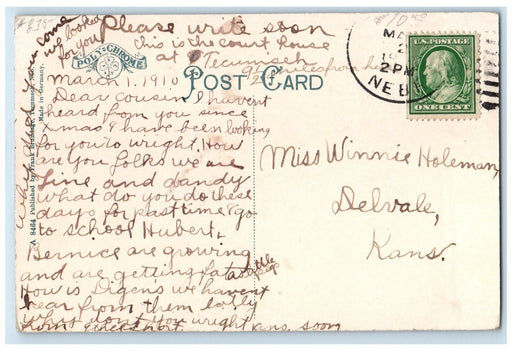 Please write soon
this is the court house
at Tecumseh
POLY-CHROME
POST CARD
March 1, 1910
Dear cousin I havent
heard from you since
Xmas I have been looking
for you to wright. How
are you folkes we are
fine and dandy
what do you do these
days for past time I go
to school Hubert,
Bernice are growing
and are getting fat
How is Digens we havent
hear from them lately
why dont you wright
ans. soon
we looked
for you
A 8464 Published by
Made in Germany.
2PM
NEB
U.S. POSTAGE
ONE CENT
Miss Winnie Holeman,
Delvale,
Kans.